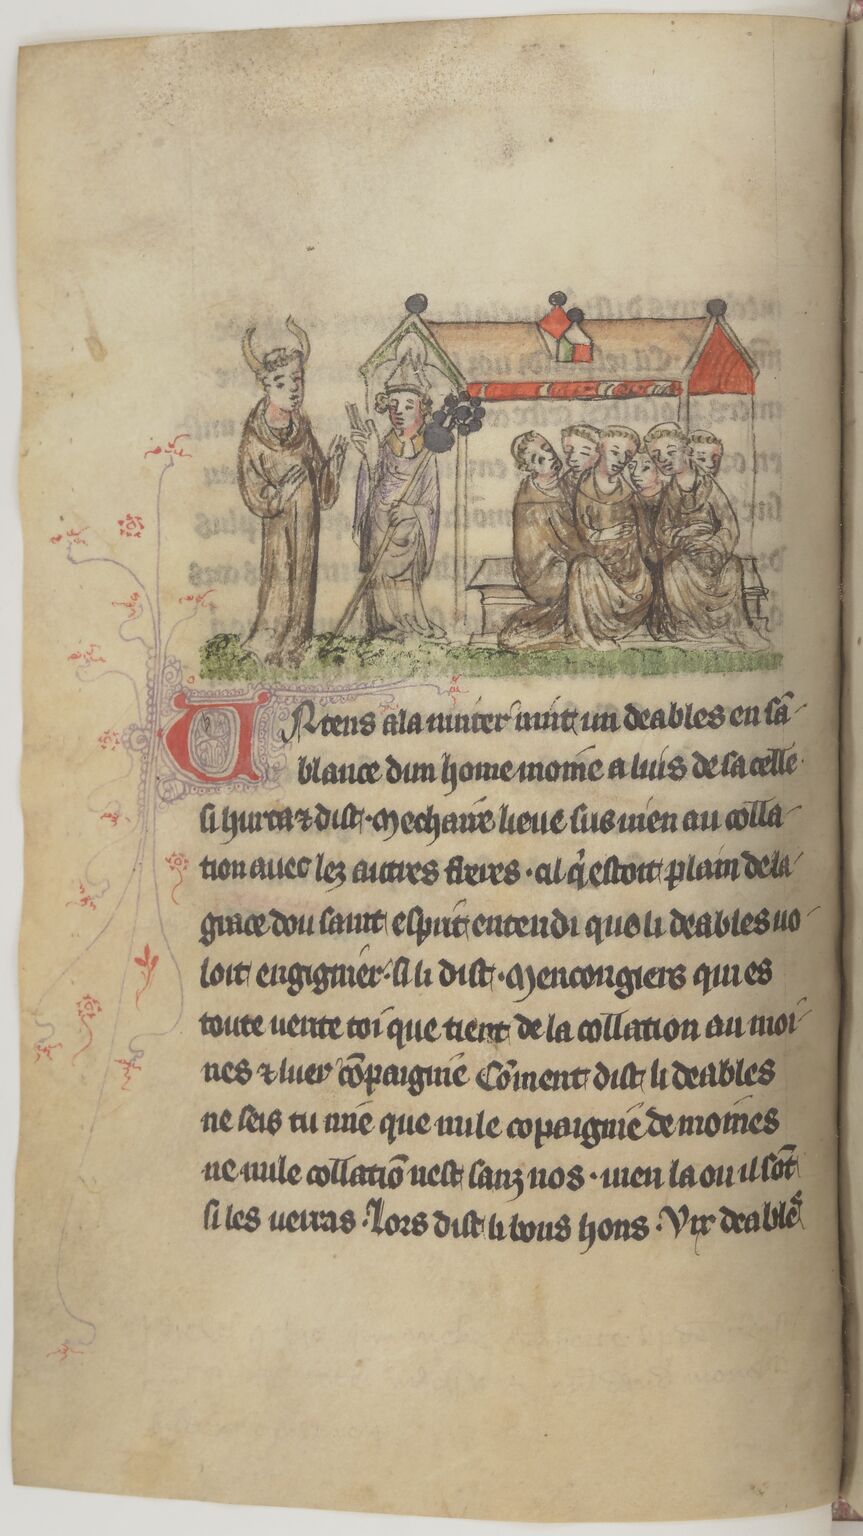 Vn tens a la nuitier vint un deables en sā-
blance dun home moine a luis de sa celle·
si hurta ⁊ dist· Mechaire lieue sus vien au colla-
tion avec lez autres freres · Cil q̇ estoit plain de la
grace dou saint esprit entendi que li deables uo-
loit engignier· Si li dist· Mencongiers qui es
toute verite toi que tient de la collation au moi-
nes ⁊ luer cōpaignie Cōment dist li deables
ne seis tu mie que nule copaignie de moines
ne nule collatiō nest sanz nos · vien la ou il sōt
si les verras · Lors dist li bons hons · Vix deable